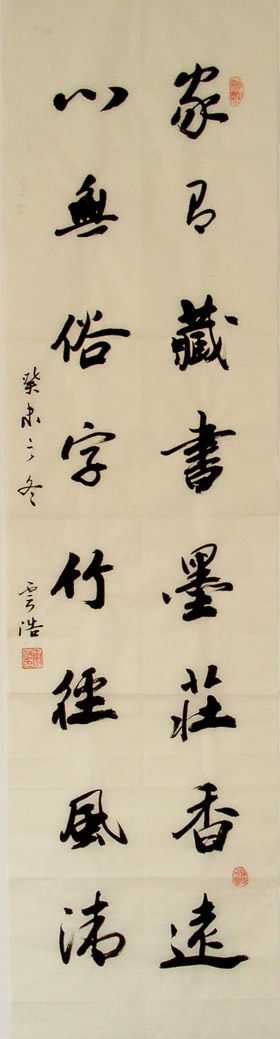 家有藏書墨莊香遠
心無俗字竹徑風清
癸未之冬 雲浩